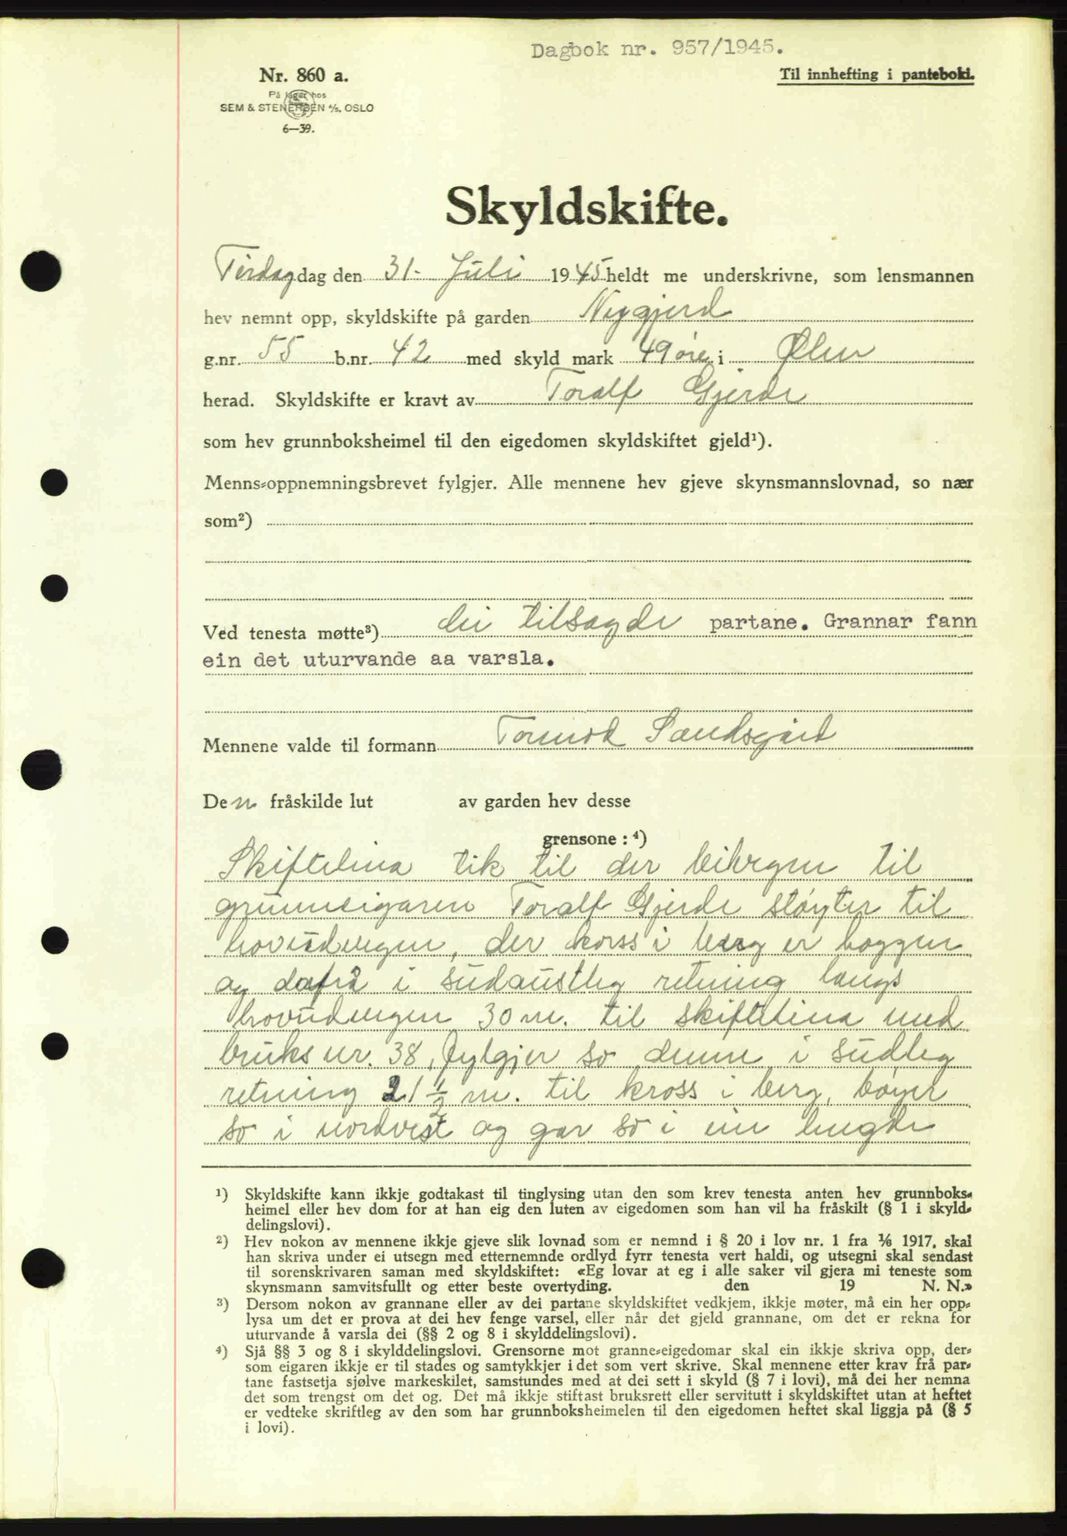 Dagbok nr. 957/1945.
Nr. 860 a.
Til innhefting i panteboki.
På lager hos
SEM & STENERSEN A/S, OSLO
6—39.
Skyldskifte.
Tirdag dag den 31. Juli 1945 heldt me underskrivne, som lensmannen
hev nemnt opp, skyldskifte på garden Nygjerd
g.nr. 55 b.nr. 42 med skyld mark 49 øre i Ølen
herad. Skyldskifte er kravt av Toralf Gjerde
som hev grunnboksheimel til den eigedomen skyldskiftet gjeld¹).
Menns-oppnemningsbrevet fylgjer. Alle mennene hev gjeve skynsmannslovnad, so nær
som²)
Ved tenesta møtte³) dei tilsagde partane. Grannar fann
ein det uturvande aa varsla.
Mennene valde til formann Tormod Sandsgård
Den fråskilde lut av garden hev desse
grensone : ⁴)
Skiftelina tek til der beitegen til
grunneigaren Toralf Gjerde støyter til
hovudvegen, der kross i berg er hoggen
og dafrå i sudaustleg retning langs
hovudvegen 30 m. til skiftelina med
bruks nr. 38, fylgjer so denne i sudleg
retning 21 ½ m. til kross i berg, bøyer
so i nordvest og gar so i ein lengde
¹) Skyldskifte kann ikkje godtakast til tinglysing utan den som krev tenesta anten hev grunnboks-
heimel eller hev dom for at han eig den luten av eigedomen som han vil ha fråskilt (§ 1 i skyld-
delingslovi).
²) Hev nokon av mennene ikkje gjeve slik lovnad som er nemnd i § 20 i lov nr. 1 fra ⅙ 1917, skal
han skriva under ei utsegn med etternemnde ordlyd fyrr tenesta vert haldi, og utsegni skal sendast
til sorenskrivaren saman med skyldskiftet: «Eg lovar at eg i alle saker vil gjera mi teneste som
skynsmann samvitsfullt og etter beste overtyding. den 19 N. N.»
³) Dersom nokon av grannane eller av dei partane skyldskiftet vedkjem, ikkje møter, må ein her opp-
lysa um det er prova at dei hev fenge varsel, eller når det gjeld grannane, om det er rekna for
uturvande å varsla dei (§§ 2 og 8 i skylddelingslovi).
⁴) Sjå §§ 3 og 8 i skylddelingslovi. Grensorne mot granne-eigedomar skal ein ikkje skriva opp, der-
som eigaren ikkje er til stades og samtykkjer i det som vert skrive. Skal mennene etter krav frå par-
tane fastsetja sjølve markeskilet, samstundes med at dei sett i skyld (§ 7 i lovi), må dei her nemna
det som trengst om det og. Det må ikkje stiftast bruksrett eller servitutt i skyldskiftet utan at heftet
er vedteke skriftleg av den som har grunnboksheimelen til den eigedomen heftet skal liggja på (§ 5
i lovi).